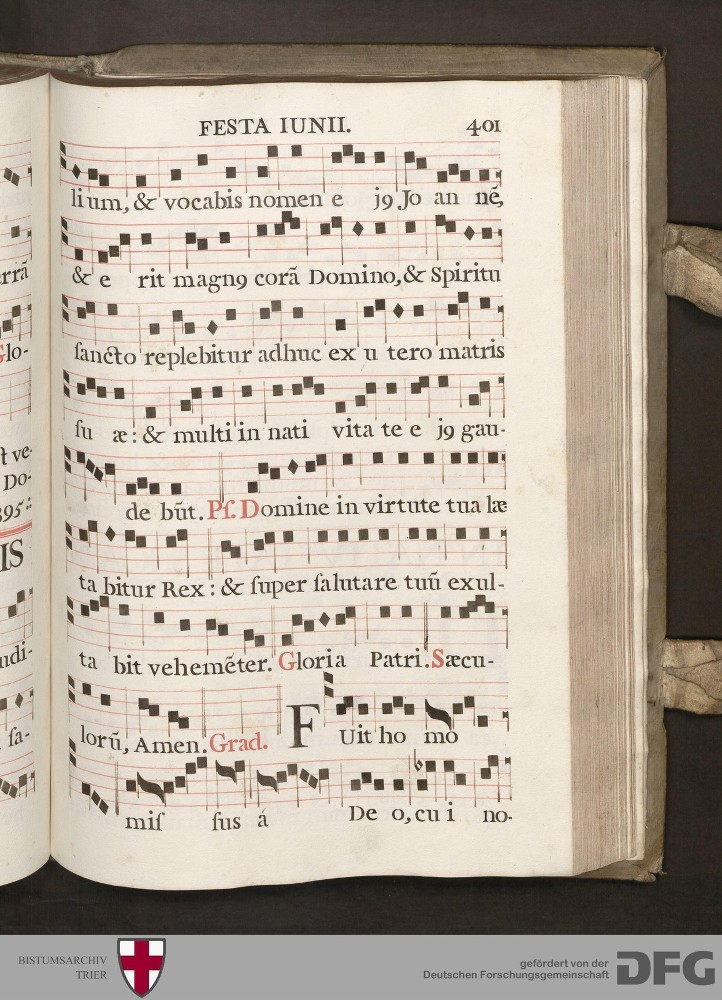 FESTA IUNII. 401
lium, & vocabis nomen e j9 Jo an nẽ,
& e rit magn9 corã Domino, & Spiritu
ſancto replebitur adhuc ex u tero matris
ſu æ: & multi in nati vita te e j9 gau-
de bũt. Pſ. Domine in virtute tua læ
ta bitur Rex: & ſuper ſalutare tuũ exul-
ta bit vehemẽter. Gloria Patri. Sæcu-
lorũ, Amen. Grad. FUit ho mo
miſ ſus á De o, cu i no-
rrã
Glo-
t ve-
Do-
395
IS
udi-
ſa-
BISTUMSARCHIV
TRIER
gefördert von der
Deutschen Forschungsgemeinschaft
DFG